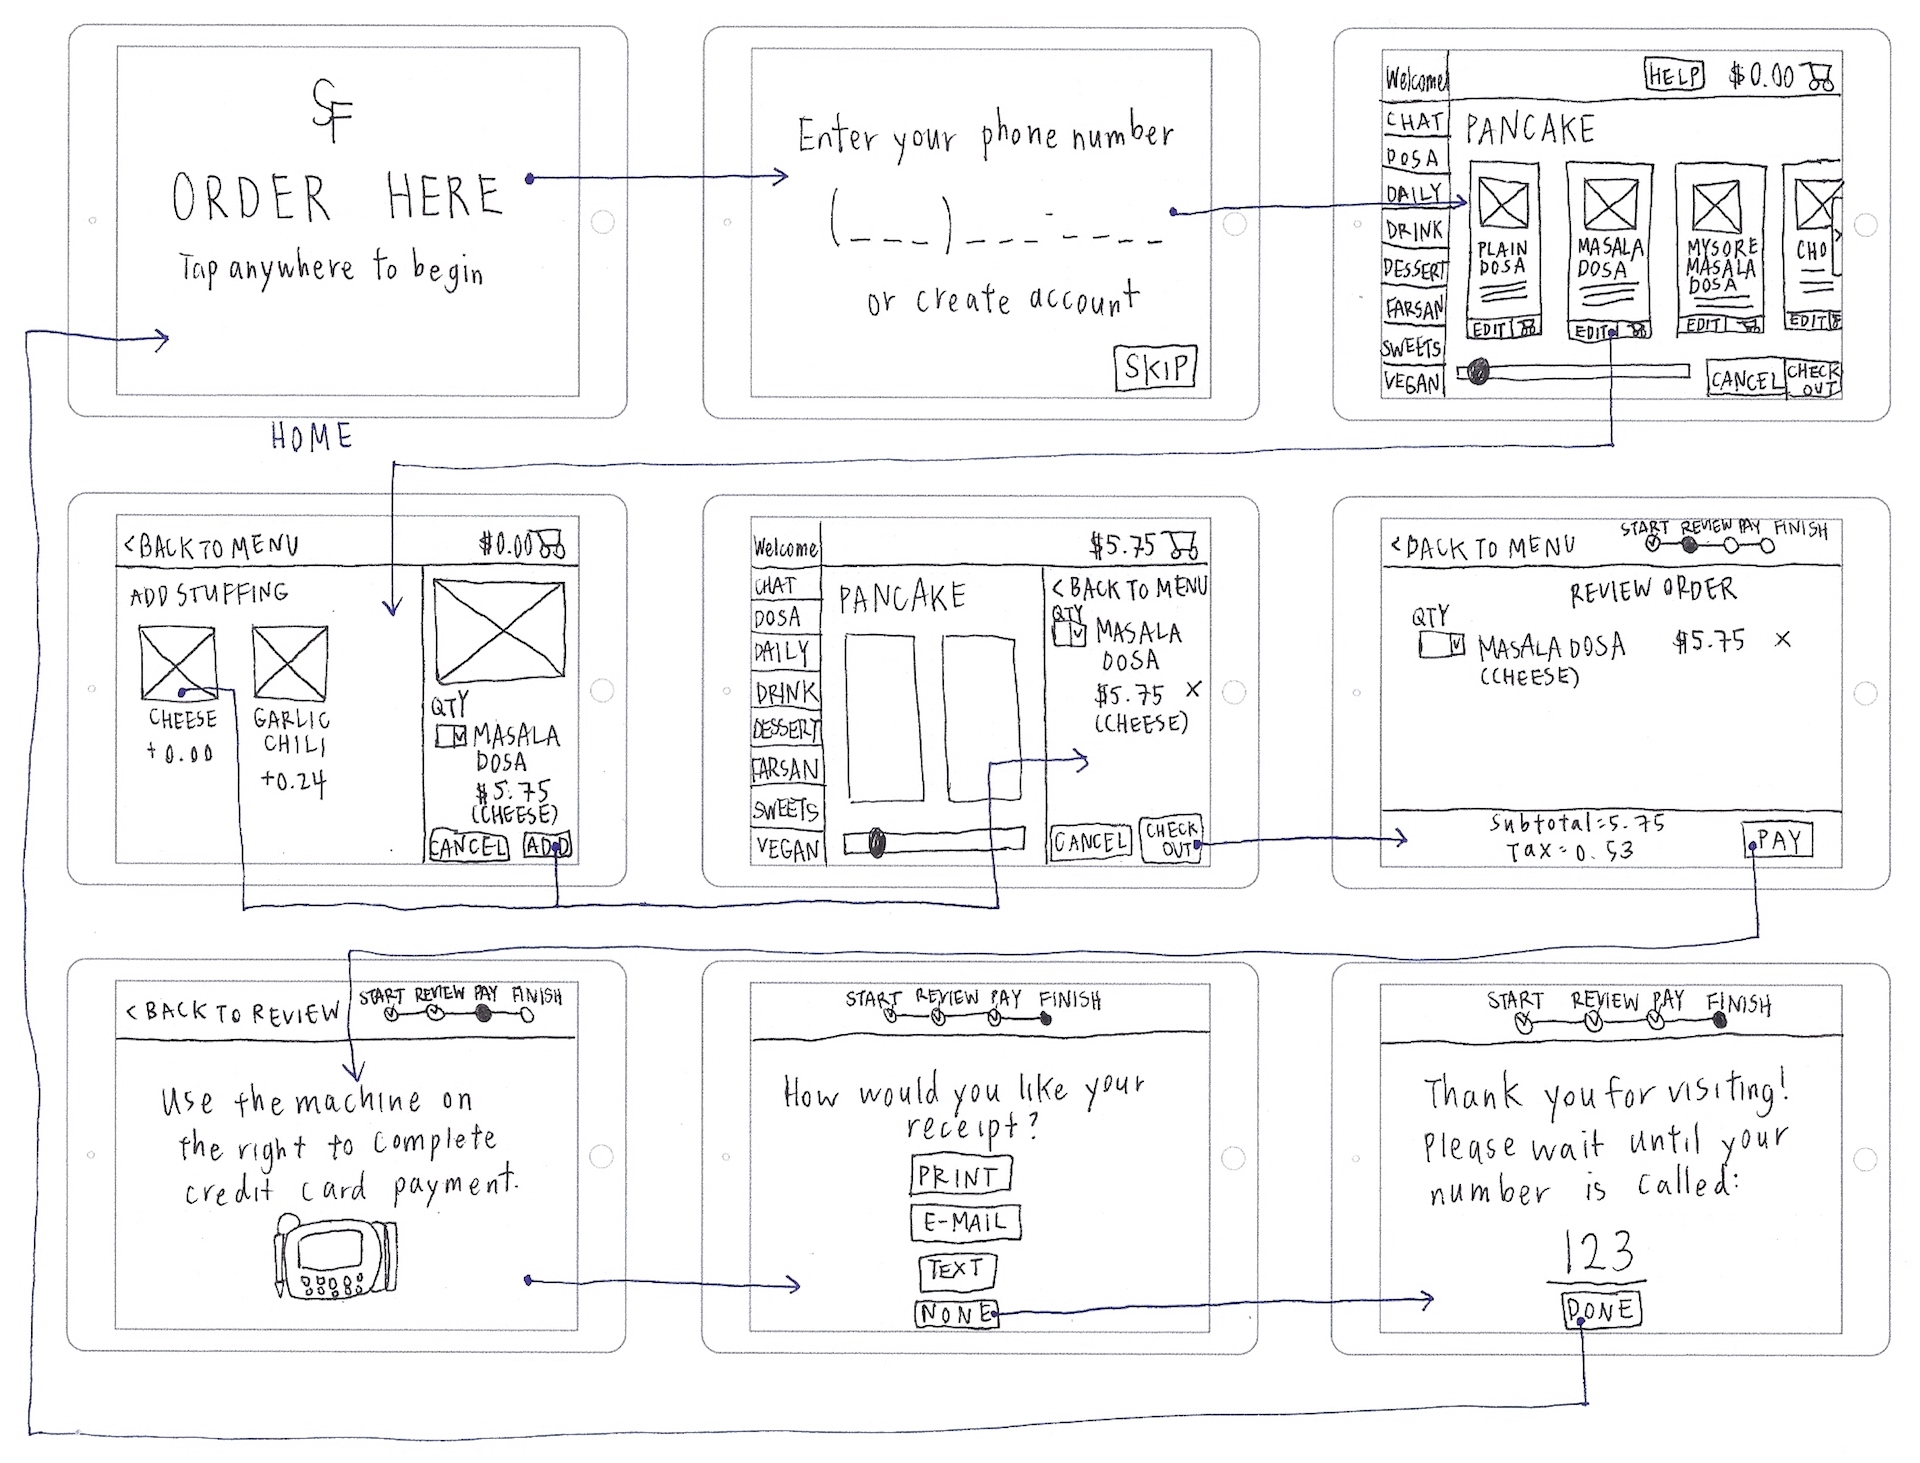 SF
ORDER HERE
Tap anywhere to begin
HOME
Enter your phone number
(___)___-____
or create account
SKIP
Welcome
HELP $0.00
CHAT
DOSA
DAILY
DRINK
DESSERT
FARSAN
SWEETS
VEGAN
PANCAKE
PLAIN
DOSA
EDIT
MASALA
DOSA
EDIT
MYSORE
MASALA
DOSA
EDIT
CHO
EDIT
>
CANCEL
CHECK
OUT
<BACK TO MENU
$0.00
ADD STUFFING
CHEESE
+0.00
GARLIC
CHILI
+0.24
QTY
MASALA
DOSA
$5.75
(CHEESE)
CANCEL
ADD
Welcome
$5.75
CHAT
DOSA
DAILY
DRINK
DESSERT
FARSAN
SWEETS
VEGAN
PANCAKE
<BACK TO MENU
QTY
MASALA
DOSA
$5.75 X
(CHEESE)
CANCEL
CHECK
OUT
<BACK TO MENU
START REVIEW PAY FINISH
REVIEW ORDER
QTY
MASALA DOSA $5.75 X
(CHEESE)
Subtotal=5.75
Tax=0.53
PAY
<BACK TO REVIEW
START REVIEW PAY FINISH
Use the machine on
the right to complete
credit card payment.
START REVIEW PAY FINISH
How would you like your
receipt?
PRINT
E-MAIL
TEXT
NONE
START REVIEW PAY FINISH
Thank you for visiting!
Please wait until your
number is called:
123
DONE